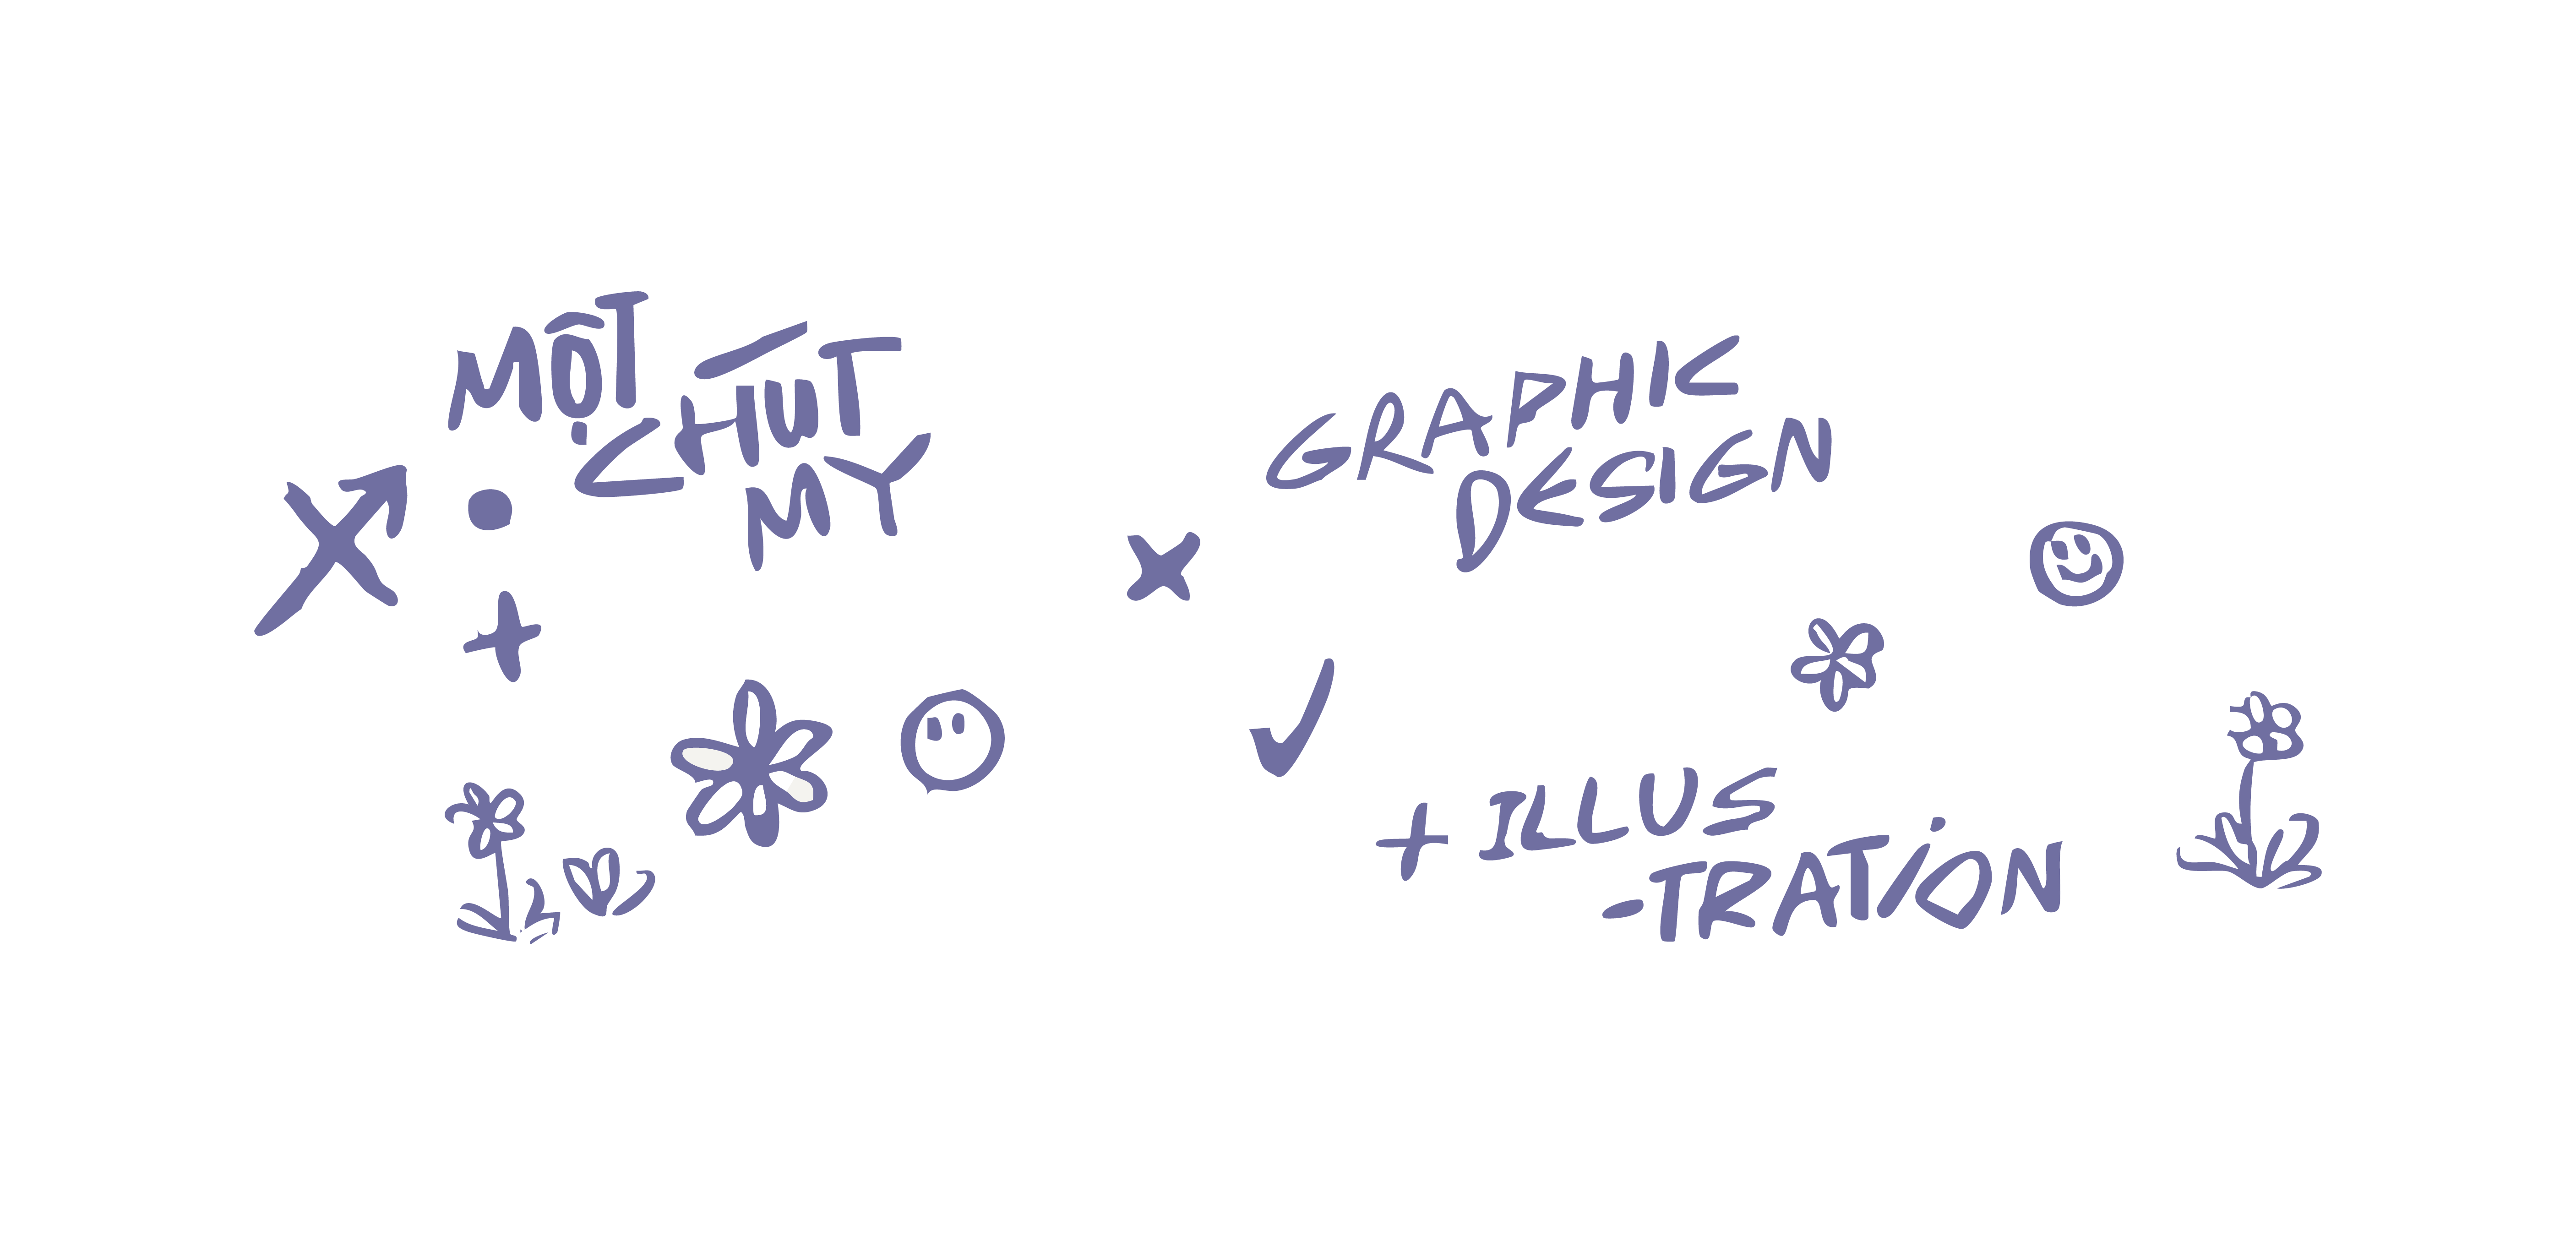 MỘT
CHÚT
MY
GRAPHIC
DESIGN
+ ILLUS
-TRATION